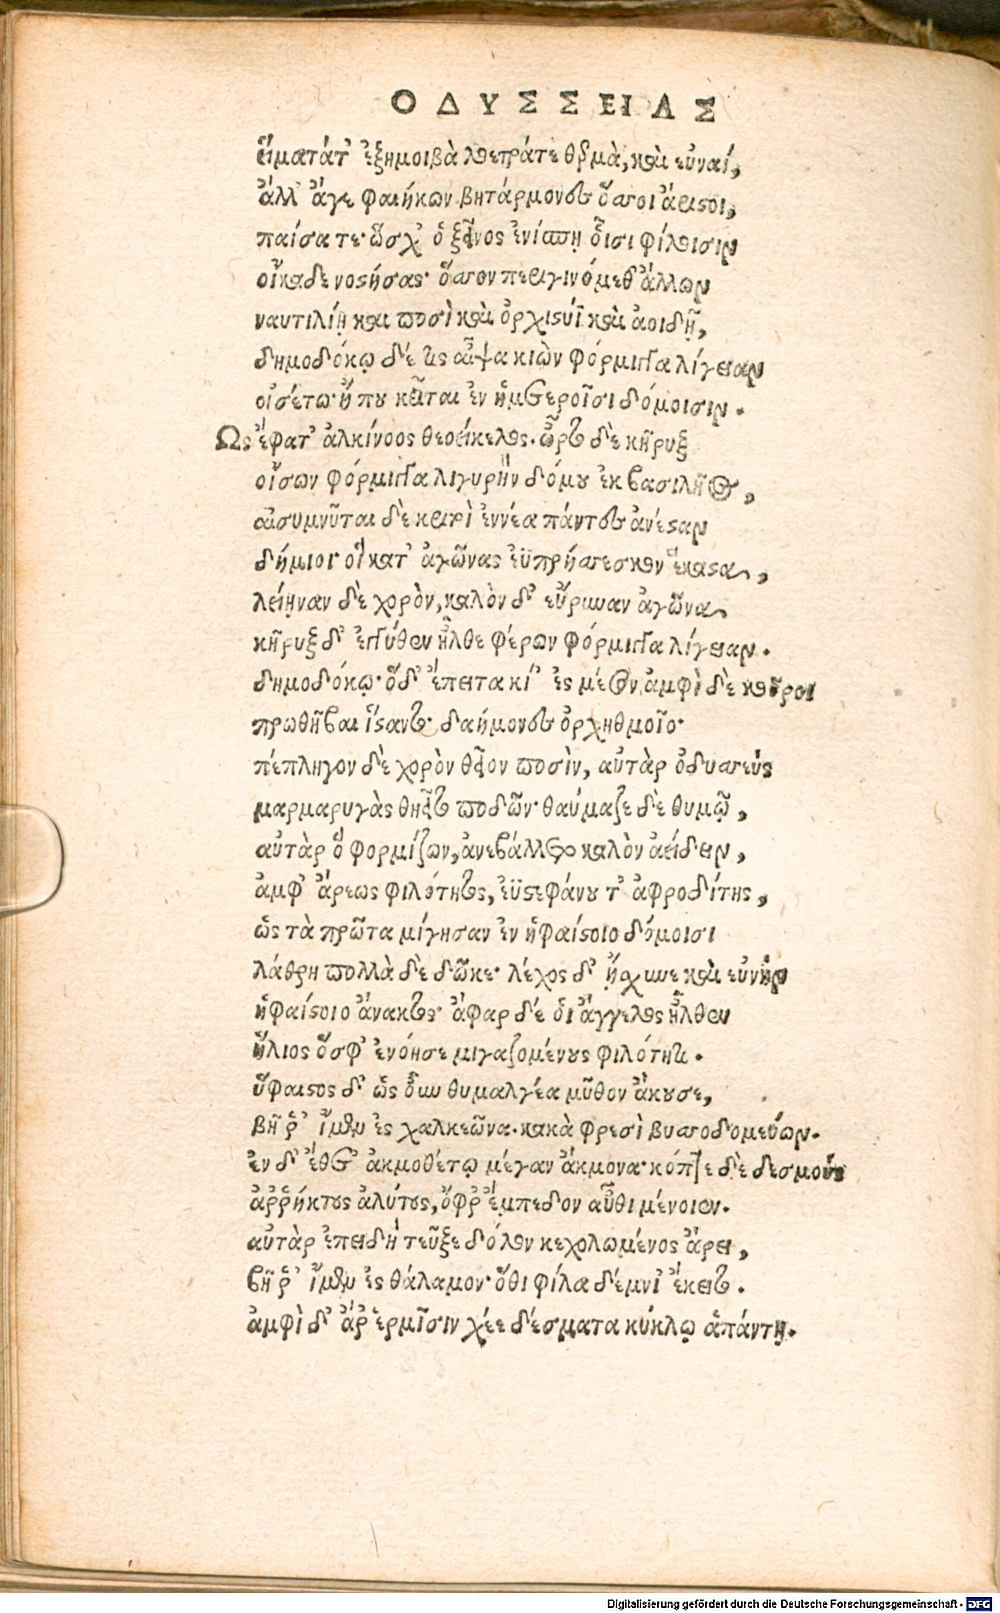 ΟΔΥΣΣΕΙΑΣ
εἵματάτ' ἐξημοιβὰ λοετράτε θερμὰ, καὶ εὐναί,
ἀλλ' ἄγε φαιήκων βητάρμονες ὅσσοι ἄριστοι,
παίσατε· ὥσχ' ὁ ξεῖνος ἐνίσπῃ οἷσι φίλοισιν
οἴκαδε νοστήσας· ὅσσον περιγινόμεθ' ἄλλων
ναυτιλίῃ καὶ ποσὶ καὶ ὀρχιστύϊ καὶ ἀοιδῇ,
δημοδόκῳ δέ τις αἶψα κιὼν φόρμιγγα λίγειαν
οἰσέτω· ἥ που κεῖται ἐν ἡμετεροῖσι δόμοισιν.
Ως ἔφατ' ἀλκίνοος θεοείκελος· ὦρτο δὲ κῆρυξ
οἴσων φόρμιγγα λιγυρὴν δόμου ἐκ βασιλῆος,
αἰσυμνῦται δὲ κριτοὶ ἐννέα πάντες ἀνέσαν
δήμιοι· οἳ κατ' ἀγῶνας ἐϋπρήσσεσκον ἕκαστα,
λείηναν δὲ χορὸν, καλὸν δ' εὔρυναν ἀγῶνα
κῆρυξ δ' ἐγγύθεν ἦλθε φέρων φόρμιγγα λίγειαν.
δημοδόκῳ· ὅδ' ἔπειτα κί' ἐς μέσον, ἀμφὶ δὲ κοῦροι
πρωθῆβαι ἵσαντο· δαήμονες ὀρχηθμοῖο·
πέπληγον δὲ χορὸν θεῖον ποσὶν, αὐτὰρ ὀδυσσεὺς
μαρμαρυγὰς θηεῖτο ποδῶν· θαύμαζε δὲ θυμῷ,
αὐτὰρ ὃ φορμίζων, ἀνεβάλλετο καλὸν ἀείδειν,
ἀμφ' ἄρεως φιλότητος, ἐϋστεφάνου τ' ἀφροδίτης,
ὡς τὰ πρῶτα μίγησαν ἐν ἡφαίστοιο δόμοισι
λάθρη πολλὰ δὲ δῶκε· λέχος δ' ᾔσχυνε καὶ εὐνὴν
ἡφαίστοιο ἄνακτος· ἄφαρ δέ οἱ ἄγγελος ἦλθεν
ἥλιος ὅσφ' ἐνόησε μιγαζομένους φιλότητι.
ὕφαιστος δ' ὡς οὖν θυμαλγέα μῦθον ἄκουσε,
βῆ ῥ' ἴμεν ἐς χαλκεῶνα. κακὰ φρεσὶ βυσσοδομεύων.
ἐν δ' ἔθετ' ἀκμοθέτῳ μέγαν ἄκμονα· κόπτε δὲ δεσμοὺς
ἀῤῥήκτους ἀλύτους, ὄφρ' ἔμπεδον αὖθι μένοιεν.
αὐτὰρ ἐπειδὴ τεῦξε δόλον κεχολωμένος ἄρει,
βῆ ῥ' ἴμεν ἐς θάλαμον· ὅθι φίλα δέμνι' ἔκειτο.
ἀμφὶ δ' ἄρ' ἑρμῖσιν χέε δέσματα κύκλῳ ἁπάντῃ.
Digitalisierung gefördert durch die Deutsche Forschungsgemeinschaft - DFG